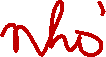 Nhỏ